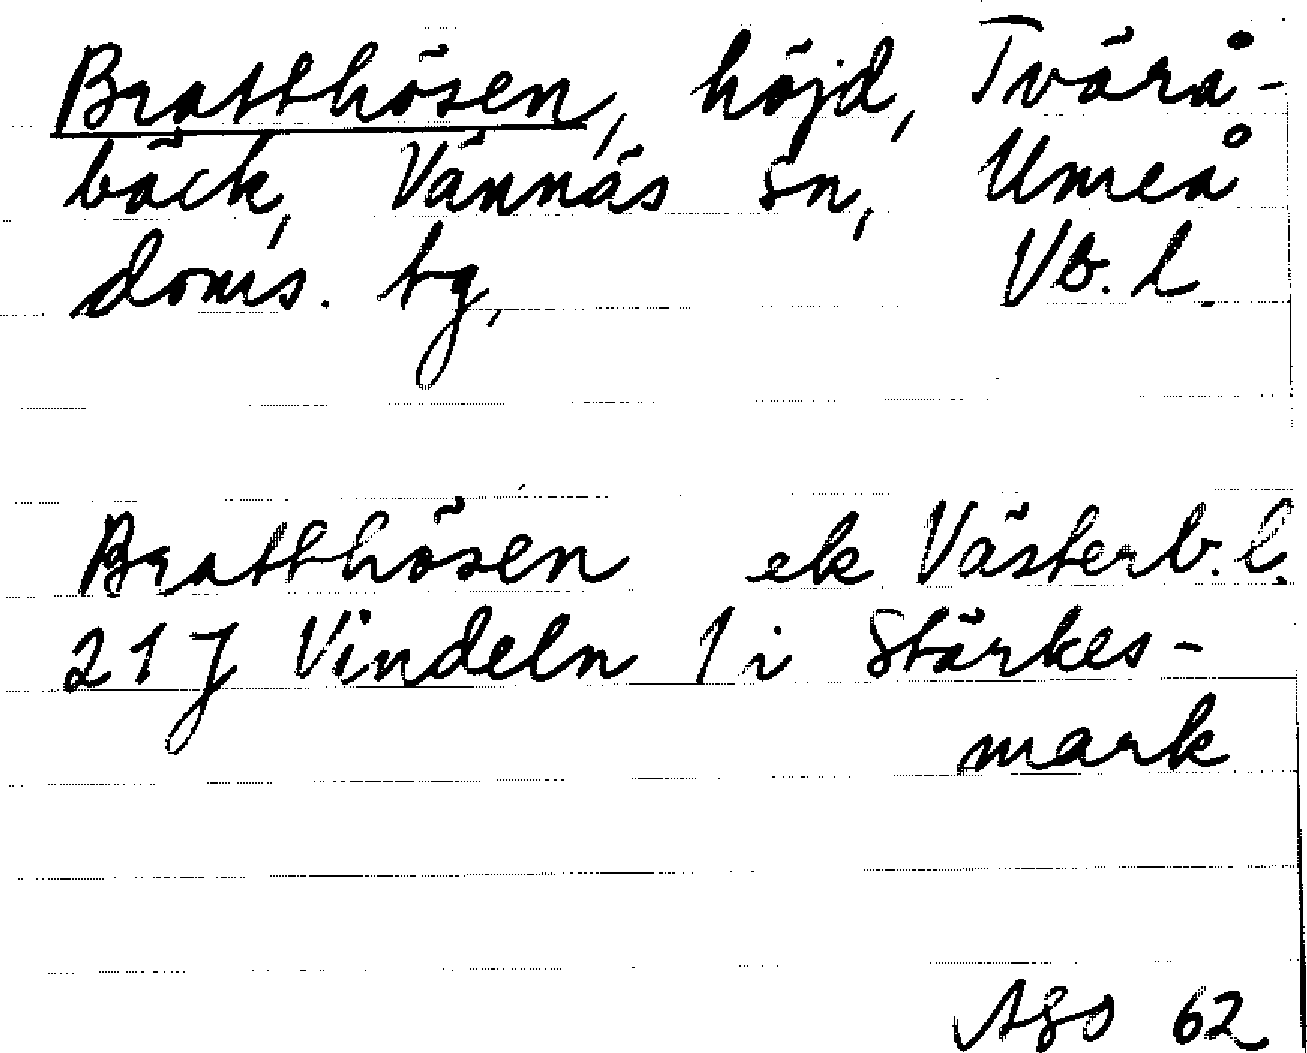 Bratthösen, höjd, Tvärå-
bäck, Vännäs sn, Umeå
doms. tg, Vb. l.
Bratthösen ek Västerb. l.
21J Vindeln 1 i Stärkes-
mark
ASO 62